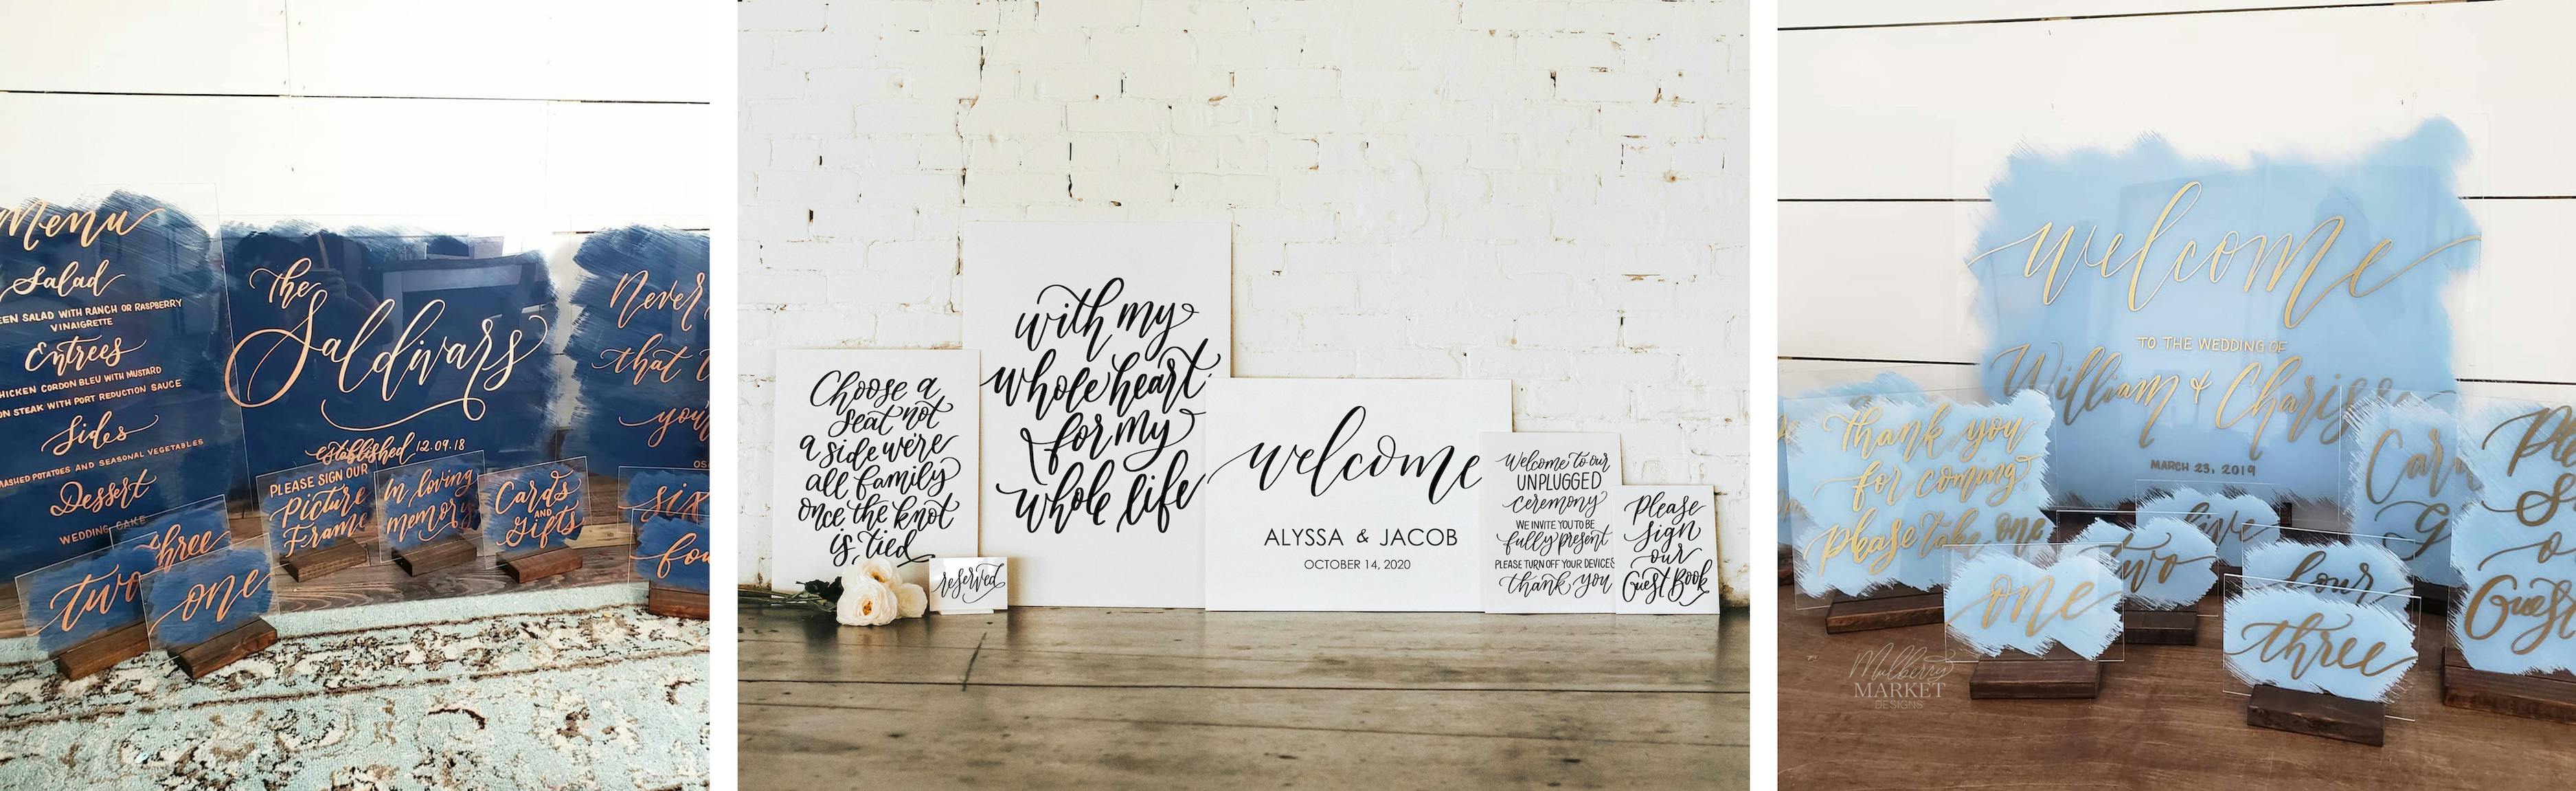 Menu
Salad
EEN SALAD WITH RANCH OR RASPBERRY
VINAIGRETTE
Entrees
HICKEN CORDON BLEU WITH MUSTARD
ON STEAK WITH PORT REDUCTION SAUCE
Sides
MASHED POTATOES AND SEASONAL VEGETABLES
Dessert
WEDDING CAKE
three
two
one
The
Saldivars
established 12.09.18
PLEASE SIGN OUR
Picture
Frame
In loving
memory
Cards
AND
Gifts
Never
that
your
six
fou
Choose a
seat not
a side we're
all family
once the knot
is tied
reserved
with my
whole heart
for my
whole life
welcome
ALYSSA & JACOB
OCTOBER 14, 2020
Welcome to our
UNPLUGGED
ceremony
WE INVITE YOU TO BE
fully present
PLEASE TURN OFF YOUR DEVICES
thank you
Please
sign
our
Guest Book
welcome
TO THE WEDDING OF
William & Chariss
MARCH 23, 2019
Thank you
for coming
please take one
Car
G
five
two
one
four
three
Ple
S
o
Guest
Mulberry
MARKET
DESIGNS